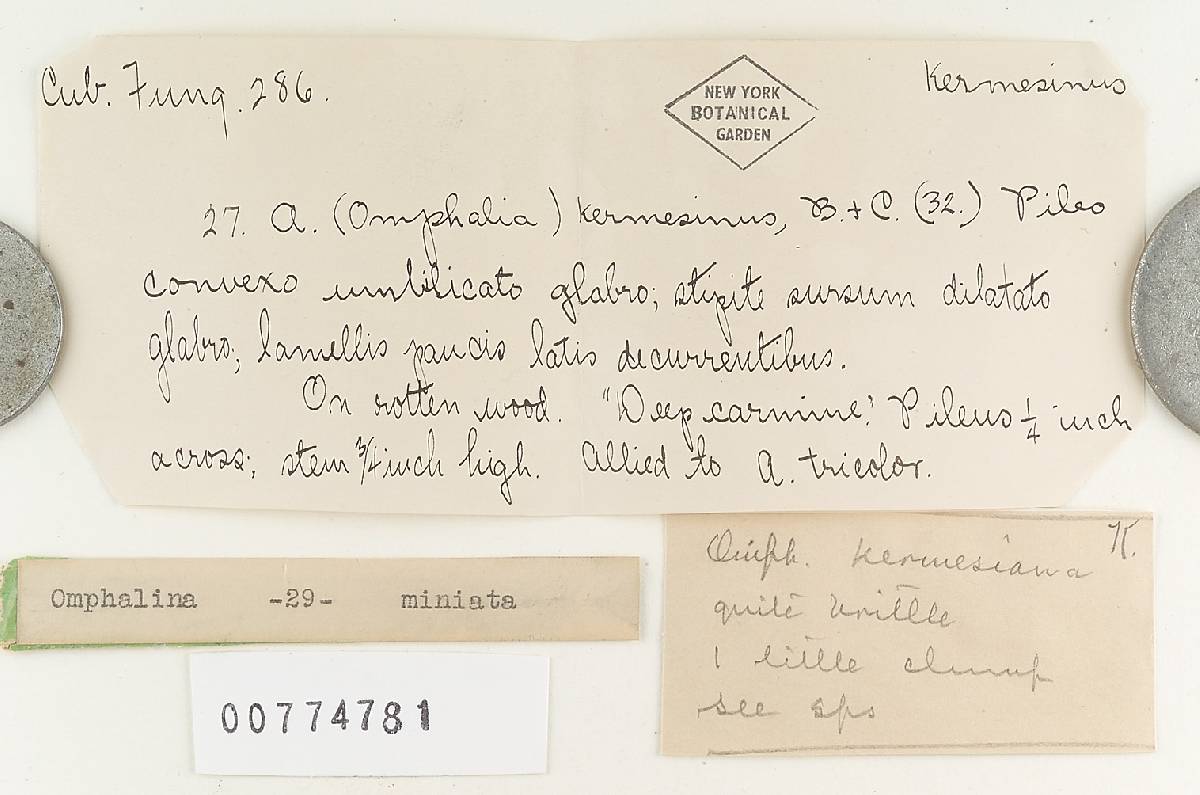 Cub. Fung. 286.
NEW YORK
BOTANICAL
GARDEN
Kermesinus
27. A. (Omphalia) kermesinus, B. + C. (32.) Pileo
convexo umbilicato glabro; stipite sursum dilatato
glabro; lamellis paucis latis decurrentibus.
On rotten wood. "Deep carmine." Pileus 1/4 inch
across; stem 3/4 inch high. Allied to A. tricolor.
Omphalina -29- miniata
00774781
K.
Omph. kermesiana
quite brittle
1 little clump
see sps